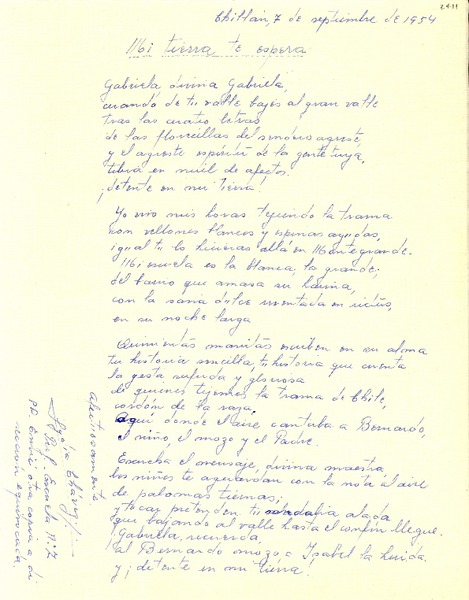 Chillán, 7 de septiembre de 1954
Mi tierra te espera
Gabriela, divina Gabriela,
cuando de tu valle bajes al gran valle
tras las cuatro letras
de las florecillas del sendero agreste
y el agreste espíritu de la gente tuya,
tibia en miel de afectos.
¡detente en mi tierra!
Yo vivo mis horas tejiendo la trama
con vellones blancos y espinas agudas,
igual tú lo hicieras allá en Montegrande.
Mi escuela es la blanca, la grande;
del barro que amasa su harina,
con la sana dulce
en su noche larga
manitas escriben en su alma
tu historia sencilla, tu historia que cuenta
la gesta sufrida y gloriosa
de quienes tejemos la trama de Chile,
cordón de la raza,
aquí donde el aire cantaba a Bernardo,
el niño, el mozo y el Padre.
Escucha el mensaje, divina maestra
los niños te aguardan con la nota al aire
de palomas tiernas;
y tocar pretenden tu sandalia alada
que bajando al valle hasta el confín llegue.
Gabriela, recuerda
al Bernardo mozo, a Isabel la huida
y ¡detente en mi tierra!
Afectuosamente
Chávez
Prof. Escuela Nº 2
PD. Envié otra copia a di
rección equivocada